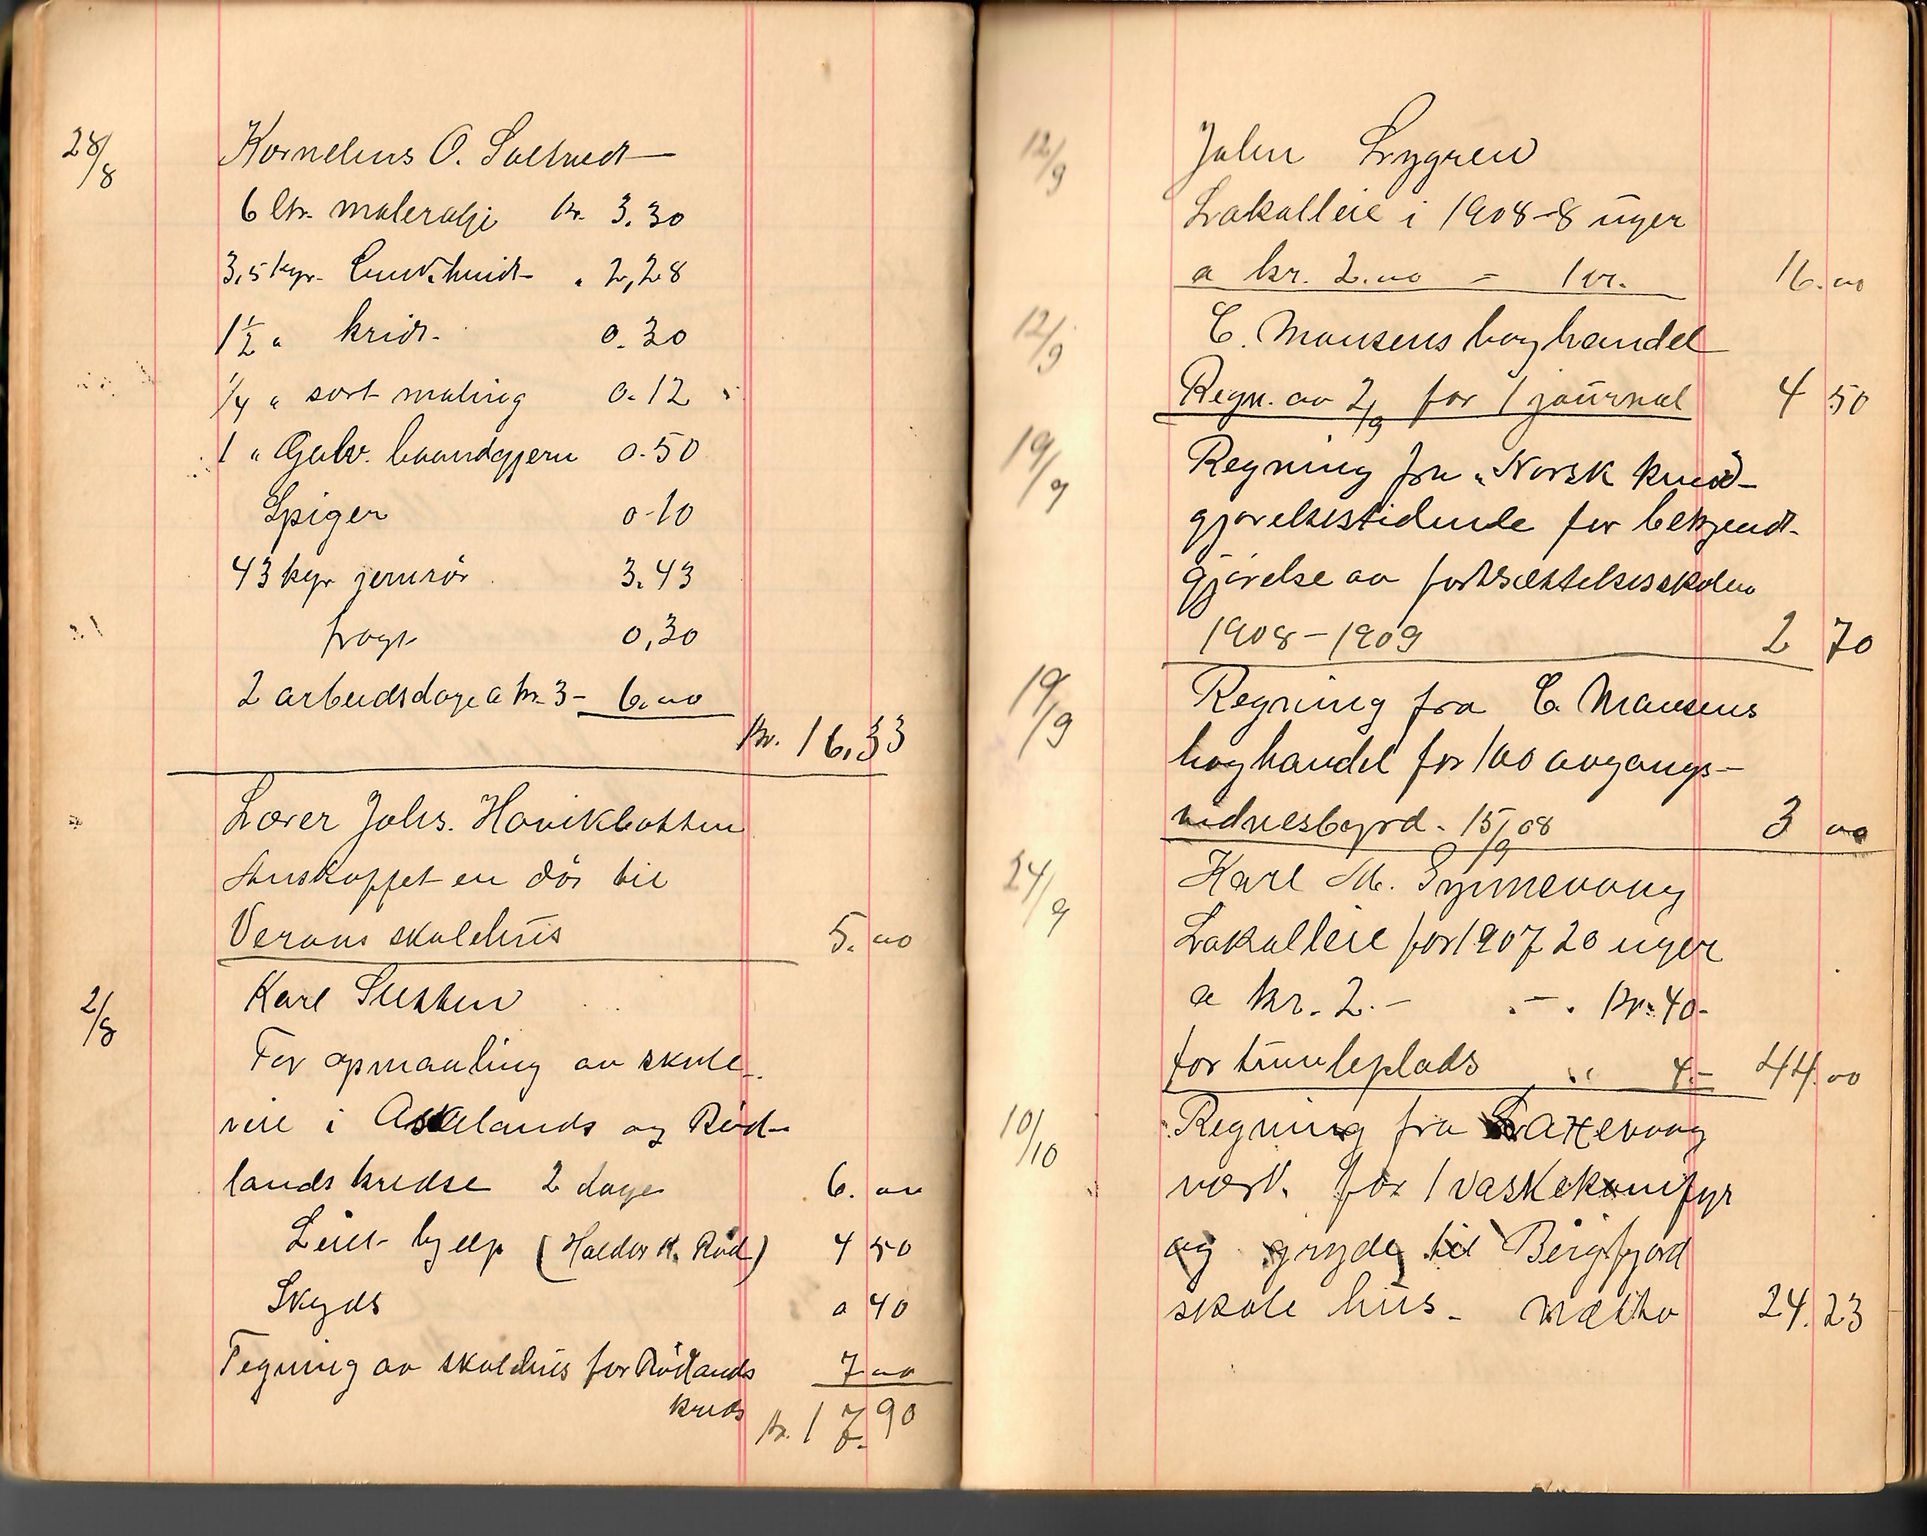 28/8 Kornelius O. Soltvedt
6 ltr. malerolje kr. 3.30
3,5 kgr. " 2,28
1½ " kridt. 0.30
1/4 " sort maling 0.12
1 " Galv. baandgjern 0.50
Spiger 0.10
43 kgr jernrör 3.43
fragt 0,30
2 arbeidsdage a kr. 3- 6.00
kr. 16,33
Lærer Johs. Hovikbotten
Anskaffet en dör til
Veraas skolehus 5.00
2/8 Karl Sletten
For opmaaling av skole-
veie i Askelands og Röd-
lands kredse 2 dage 6.00
Leiet hjelp (Haldor K. Röd) 4 50
Skyds 0 40
Tegning av skolehus for Rödlands 7 00
kreds kr. 17.90
12/9 John Lygren
Lokalleie i 1908-8 uger
a kr. 2.00 - kr. 16.00
12/9 C. Monsens boghandel
Regn. av 2/9 for 1 journal 4 50
19/9 Regning fra "Norsk kund-
gjørelsestidende for bekjendt-
gjørelse av fortsættelsesskolen
1908-1909 2 70
19/9 Regning fra C. Monsens
boghandel for 100 avgangs-
vidnesbyrd. 15/9 08 3 00
24/9 Karl M. Synnevaag
Lokalleie for 1907 20 uger
a kr. 2.- .-. Kr. 40-
for tumleplads " 4.- 44.00
10/10 Regning fra Laxevaag
værk. for 1 vaskekomfyr
og gryde til Birgfjord
skole hus. netto 24.23